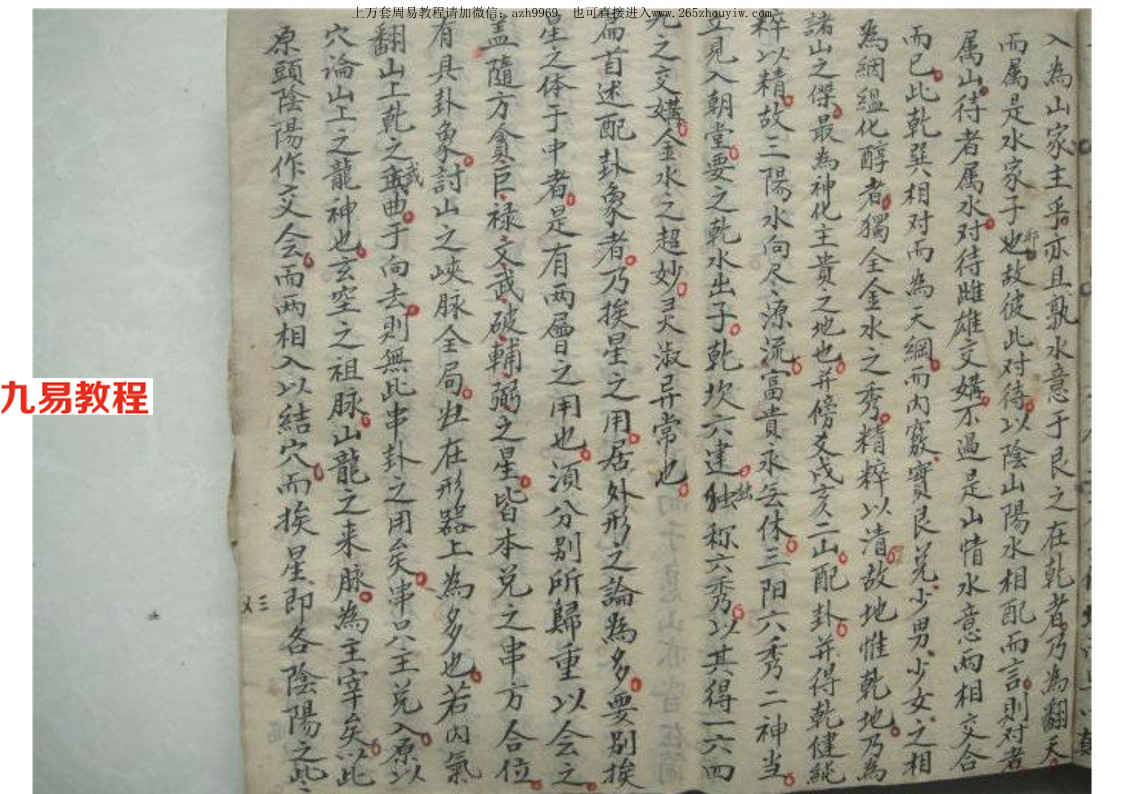 上万套周易教程请加微信：azh9969，也可直接进入www.265zhouyiw.com
九易教程
入為山家主乎亦且孰水意于艮之在乾者乃為翻天
而属是水家子也故彼此对待以陰山陽水相配而言則对者
属山待者属水对待雌雄交媾不過是山情水意两相交合
而已此乾巽相对而為天綱而内竅實艮兑少男少女之相
為絪緼化醇者獨全金水之秀精粹以清故地惟乾地乃為
諸山之傑最為神化主貴之地也并傍爻戌亥二山配卦并得乾健
粹以精故二陽水向尽源流富貴永无休三阳六秀二神当
立見入朝堂要之乾水出子乾坎六建独称六秀以其得一六四
九之交媾金水之超妙灵淑异常也
篇首述配卦象者乃挨星之用居外形之論為多要别挨
星之体于中者是有两層之用也湏分别所歸重以会之
盖隨方貪巨禄文武破輔弼之星皆本兑之串方合位
有具卦象討山之峽脉全局在形器上為多也若内氣
翻山上乾之武曲于向去則無此串卦之用矣串只主兑入原以
穴論山上之龍神也玄空之祖脉山龍之来脉為主宰矣以此
原頭陰陽作交会而两相入以結穴而挨星即各陰陽之些
三